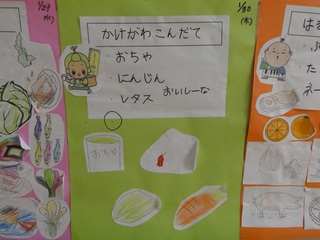 1/29
(水)
1/30
(木)
かけがわこんだて
・おちゃ
・にんじん
・レタス おいしーな
おちゃ
は
た
ネー